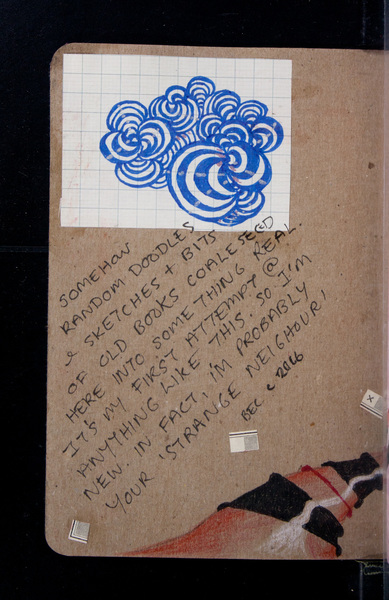 SOMEHOW
RANDOM DOODLES
& SKETCHES + BITS
OF OLD BOOKS COALESCED
HERE INTO SOMETHING REAL
IT'S MY FIRST ATTEMPT @
ANYTHING LIKE THIS. SO I'M
NEW. IN FACT, I'M PROBABLY
YOUR 'STRANGE NEIGHOUR'
DEC 2016
x